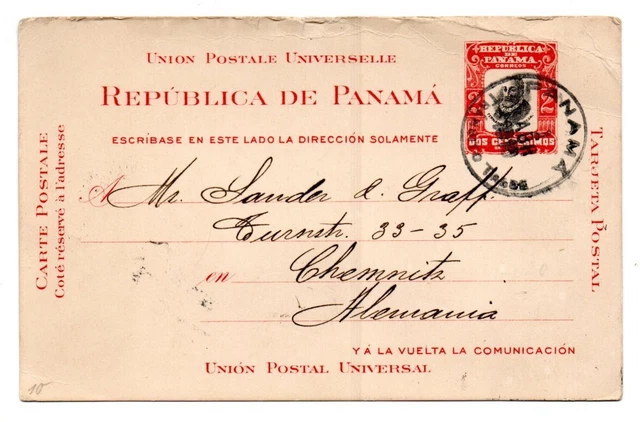 UNION POSTALE UNIVERSELLE
REPÚBLICA DE PANAMÁ
ESCRÍBASE EN ESTE LADO LA DIRECCIÓN SOLAMENTE
REPÚBLICA
DE
PANAMÁ
CORREOS
2
DOS CENTÉSIMOS
PANAMA
CARTE POSTALE
Coté réservé à l'adresse
TARJETA POSTAL
A Mr. Sander & Graff.
Turnstr. 33-35
en Chemnitz
Alemania
Y Á LA VUELTA LA COMUNICACIÓN
UNIÓN POSTAL UNIVERSAL
10